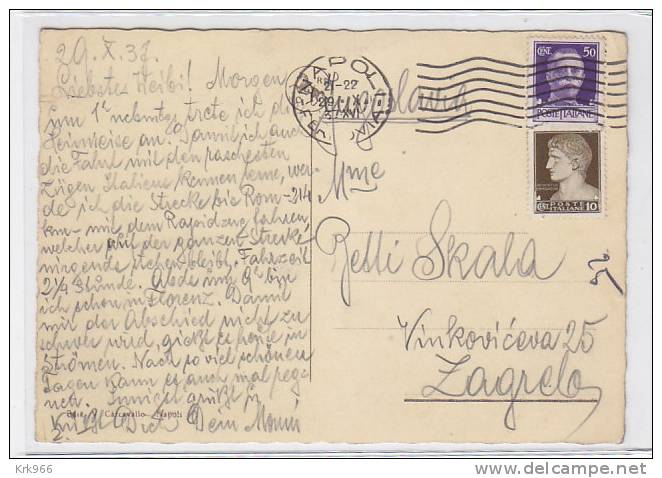 29. X. 37.
Liebstes Weibi! Morgen
um 1h nahmitg trete ich die
Heimreise an. Damit ich auch
die Fahrt mit den raschesten
Zügen Italiens kennen lerne, wer-
de ich die Strecke bis Rom - 214
km - mit dem Rapidzug fahren,
welcher auf der ganzen Strecke
nirgends stehen bleibt. Fahrzeit
2 1/4 Stunde. Abds um 9h bin
ich schon in Florenz. Damit
mir der Abschied nicht zu
schwer wird, gießt es heute in
Strömen. Nach so viel schönen
Tagen kann es auch mal reg-
nen. Innigst grüßt u.
küßt Dich Dein
Ediz. Carcavallo - Napoli
NAPOLI FERROVIA
21-22
29 X
37 XVI
CENT. 50
POSTE ITALIANE
POSTE
ITALIANE
CENT. 10
Mme
Betti Skala
Vinkovićeva 25
Zagreb
25
Krk966
www.delcampe.net